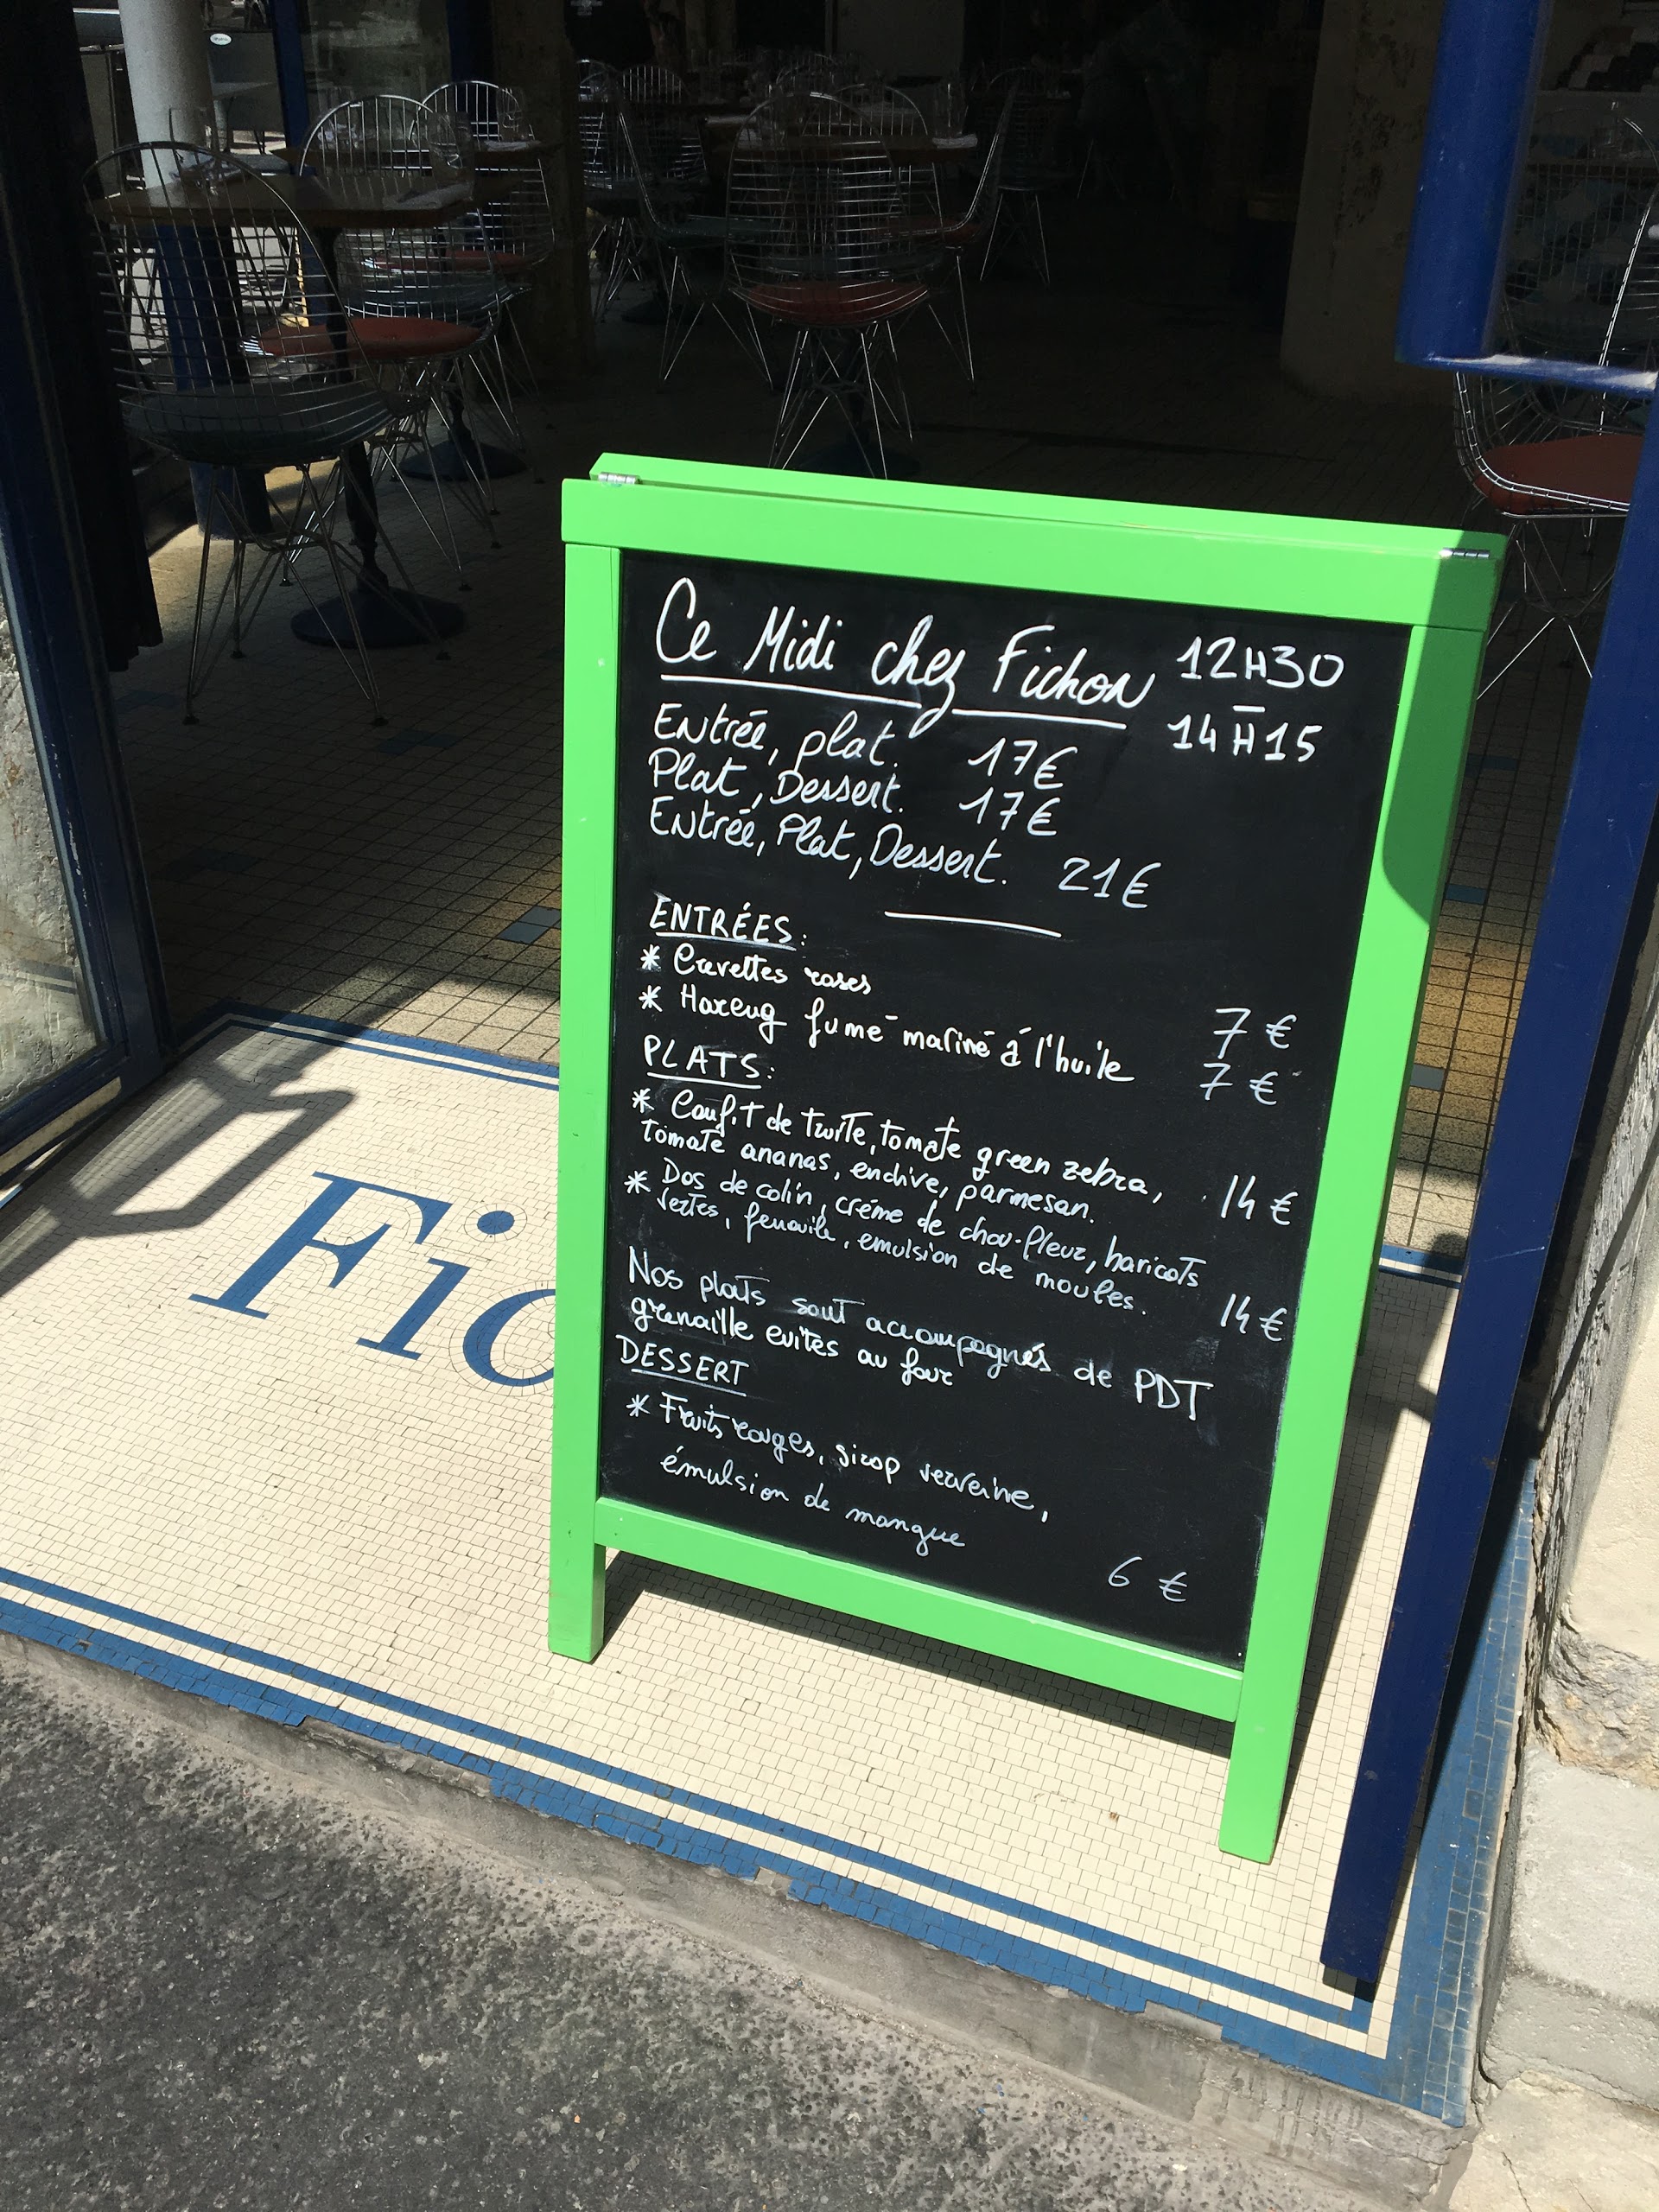 Ce Midi chez Fichon 12H30
- 14H15
Entrée, plat. 17€
Plat, Dessert. 17€
Entrée, Plat, Dessert. 21€
ENTRÉES:
* Crevettes roses 7 €
* Hareng fumé mariné à l'huile 7 €
PLATS:
* Confit de truite, tomate green zebra,
tomate ananas, endive, parmesan. 14 €
* Dos de colin, crème de chou-fleur, haricots
vertes, fenouile, emulsion de moules. 14 €
Nos plats sont accompagnés de PDT
grenaille cuites au four
DESSERT
* Fruits rouges, sirop verveine,
émulsion de mangue
6 €
Fic